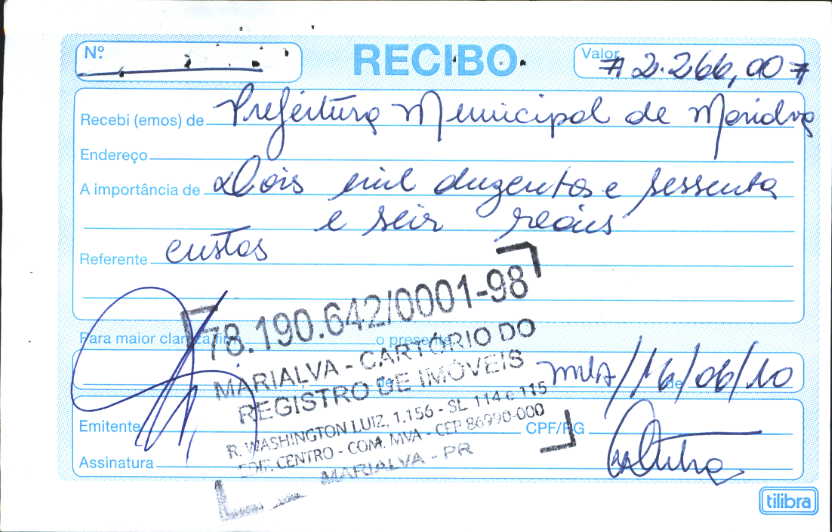 Nº RECIBO Valor # 2.266,00 #
Recebi (emos) de Prefeitura Municipal de Marialva
Endereço
A importância de Dois mil duzentos e sessenta
e seis reais
Referente custas
78.190.642/0001-98
Para maior clareza fi o presente
MARIALVA - CARTÓRIO DO
REGISTRO DE IMÓVEIS
mva/16/06/10
R. WASHINGTON LUIZ, 1.156 - SL 114 e 115
EDIF. CENTRO - COM. MVA - CEP 86990-000
MARIALVA - PR
Emitente CPF/RG
Assinatura
tilibra